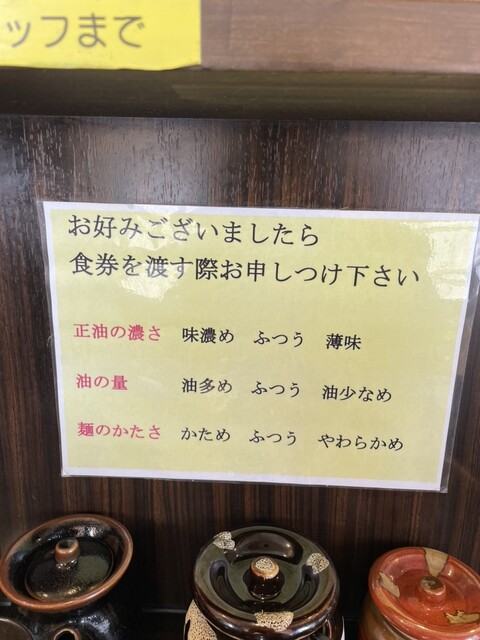 ッフまで
お好みございましたら
食券を渡す際お申しつけ下さい
正油の濃さ 味濃め ふつう 薄味
油の量 油多め ふつう 油少なめ
麺のかたさ かため ふつう やわらかめ